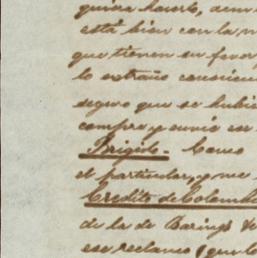 quiera hacerlo,
está bien con la
que tienen su favor
lo extraño
seguro que se hubie
compra y envio
Brigido. Como
el particular, y me
Credito de Colomb
de la de Barings
ese reclamo (que lo